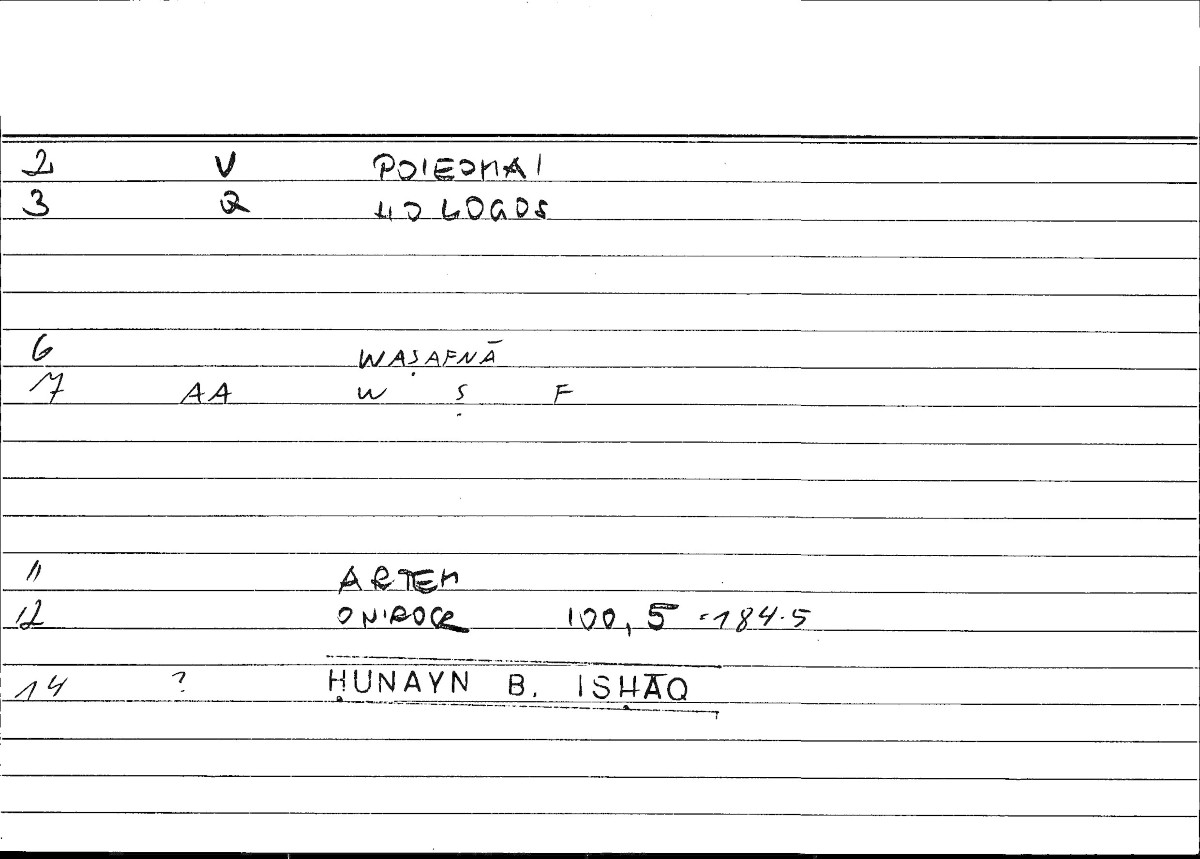 2 V POIEOMAI
3 Q HO LOGOS
6 WAṢAFNĀ
7 AA W Ṣ F
11 ARTEM
12 ONIROCR 100, 5 = 184.5
14 ? ḤUNAYN B. ISḤĀQ